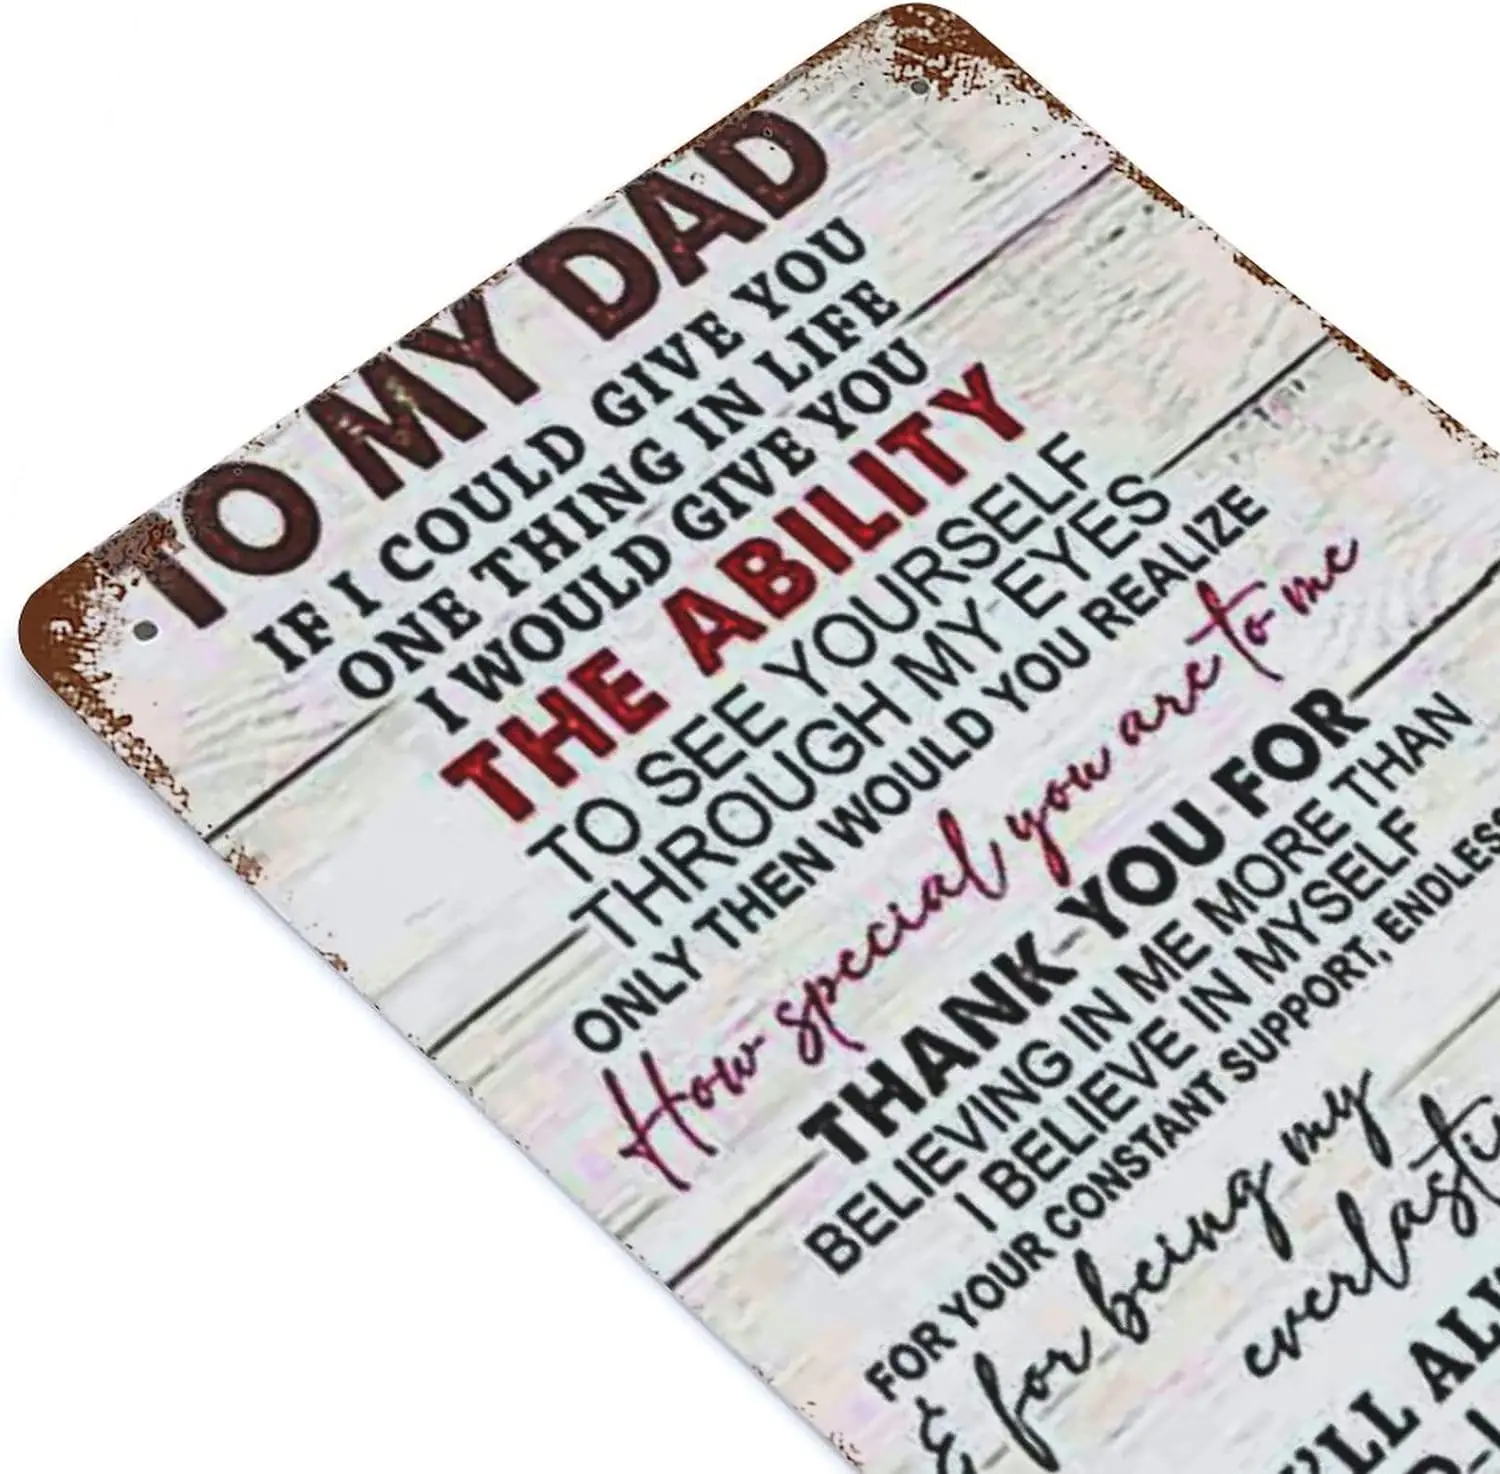 TO MY DAD
IF I COULD GIVE YOU
ONE THING IN LIFE
I WOULD GIVE YOU
THE ABILITY
TO SEE YOURSELF
THROUGH MY EYES
ONLY THEN WOULD YOU REALIZE
How special you are to me
THANK YOU FOR
BELIEVING IN ME MORE THAN
I BELIEVE IN MYSELF
FOR YOUR CONSTANT SUPPORT, ENDLESS
& for being my